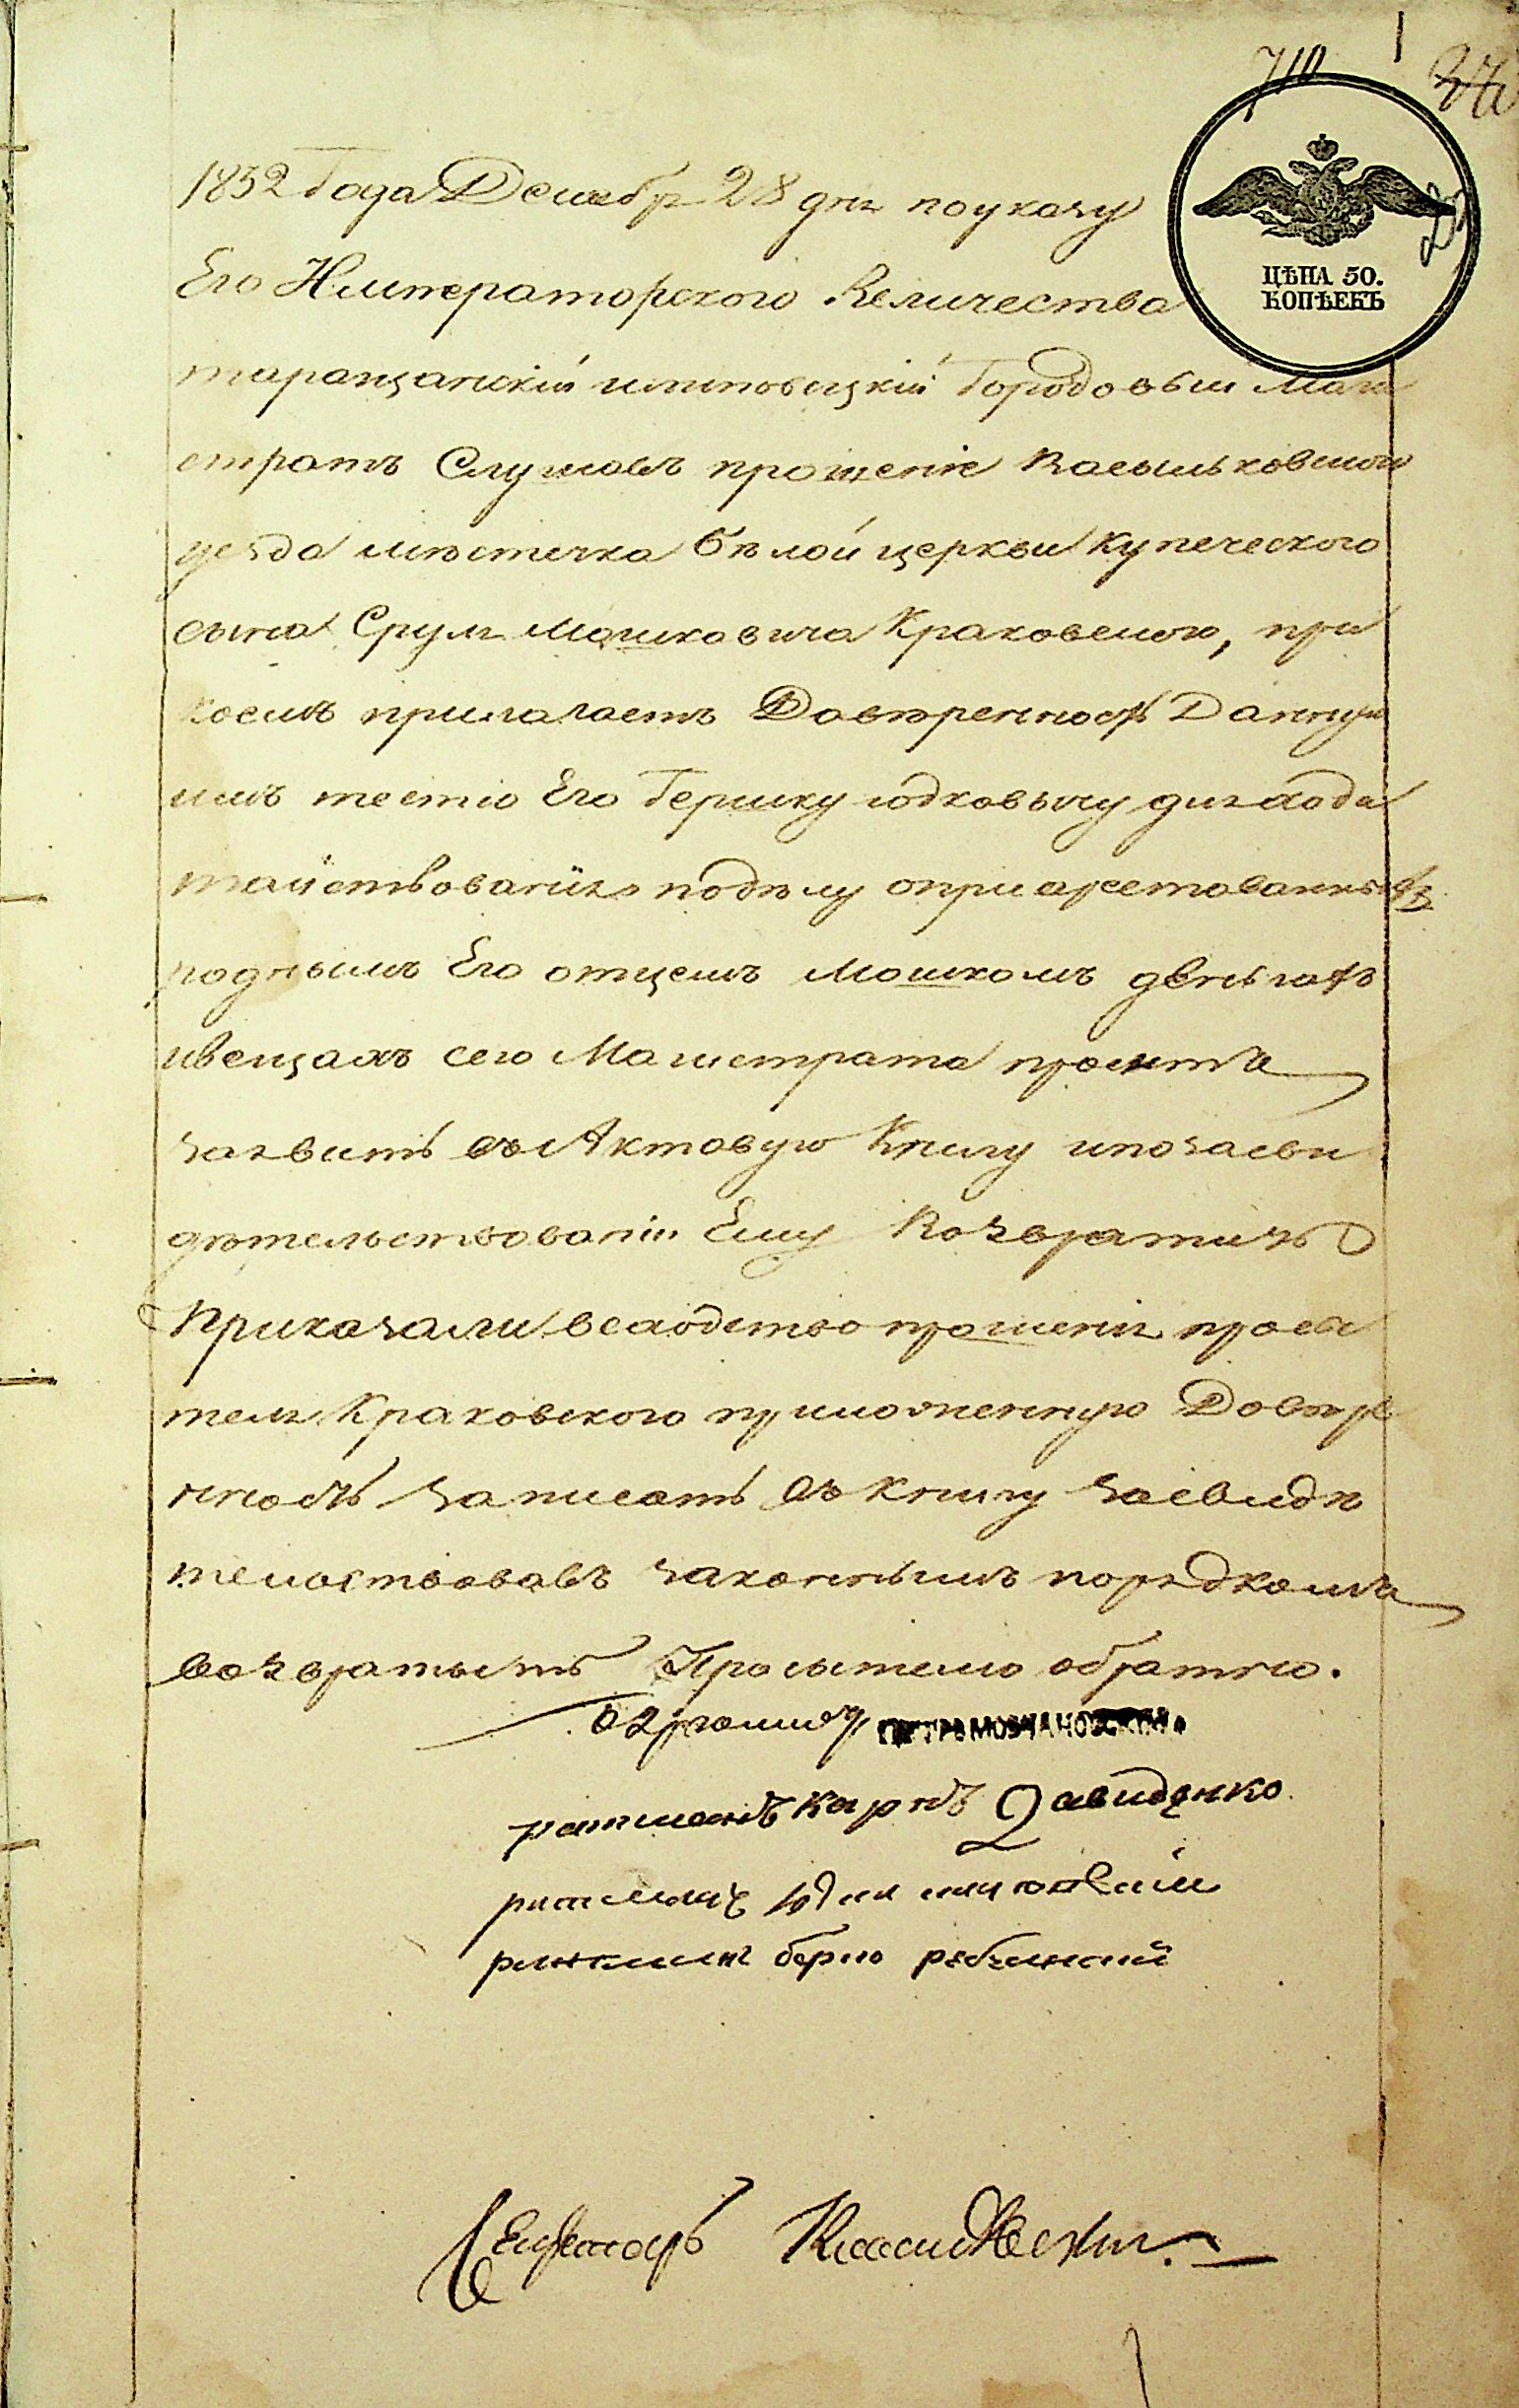 710
ЦѢНА 50.
КОПѢЕКЪ
1832 Года Декабр 28 дня по указу
Его Императорского Величества
таращанскій Городовый Маги
стратъ Слушавъ прошеніе Васыльковского
уезда мѣстечка бѣлой церкви Купеческого
сына Срулa Мошковича Краковского, при
коемъ прилагаетъ Довѣренность Данную
имъ тестю Его Гершку юдковычу для ходa
тайствованія подѣлу оприарестованныхъ
родным Его отцемъ Мошкомъ деньгахъ
ивещахъ сего Магистрата проситъ
заявить въ Актовую Книгу ипозасви
дѣтельствованіи Ему Возвратить
Приказали вслѣдство прошенія просы
теля Краковского приложенную Довѣре
нность записать въ книгу засвидѣ
тельствовавъ законнымъ порядкомъ
возвратыть Просытелю обратно.
Бургомистръ
ратманъ Карпъ Давиденко
ратманъ
ратманъ берко
Секретарь